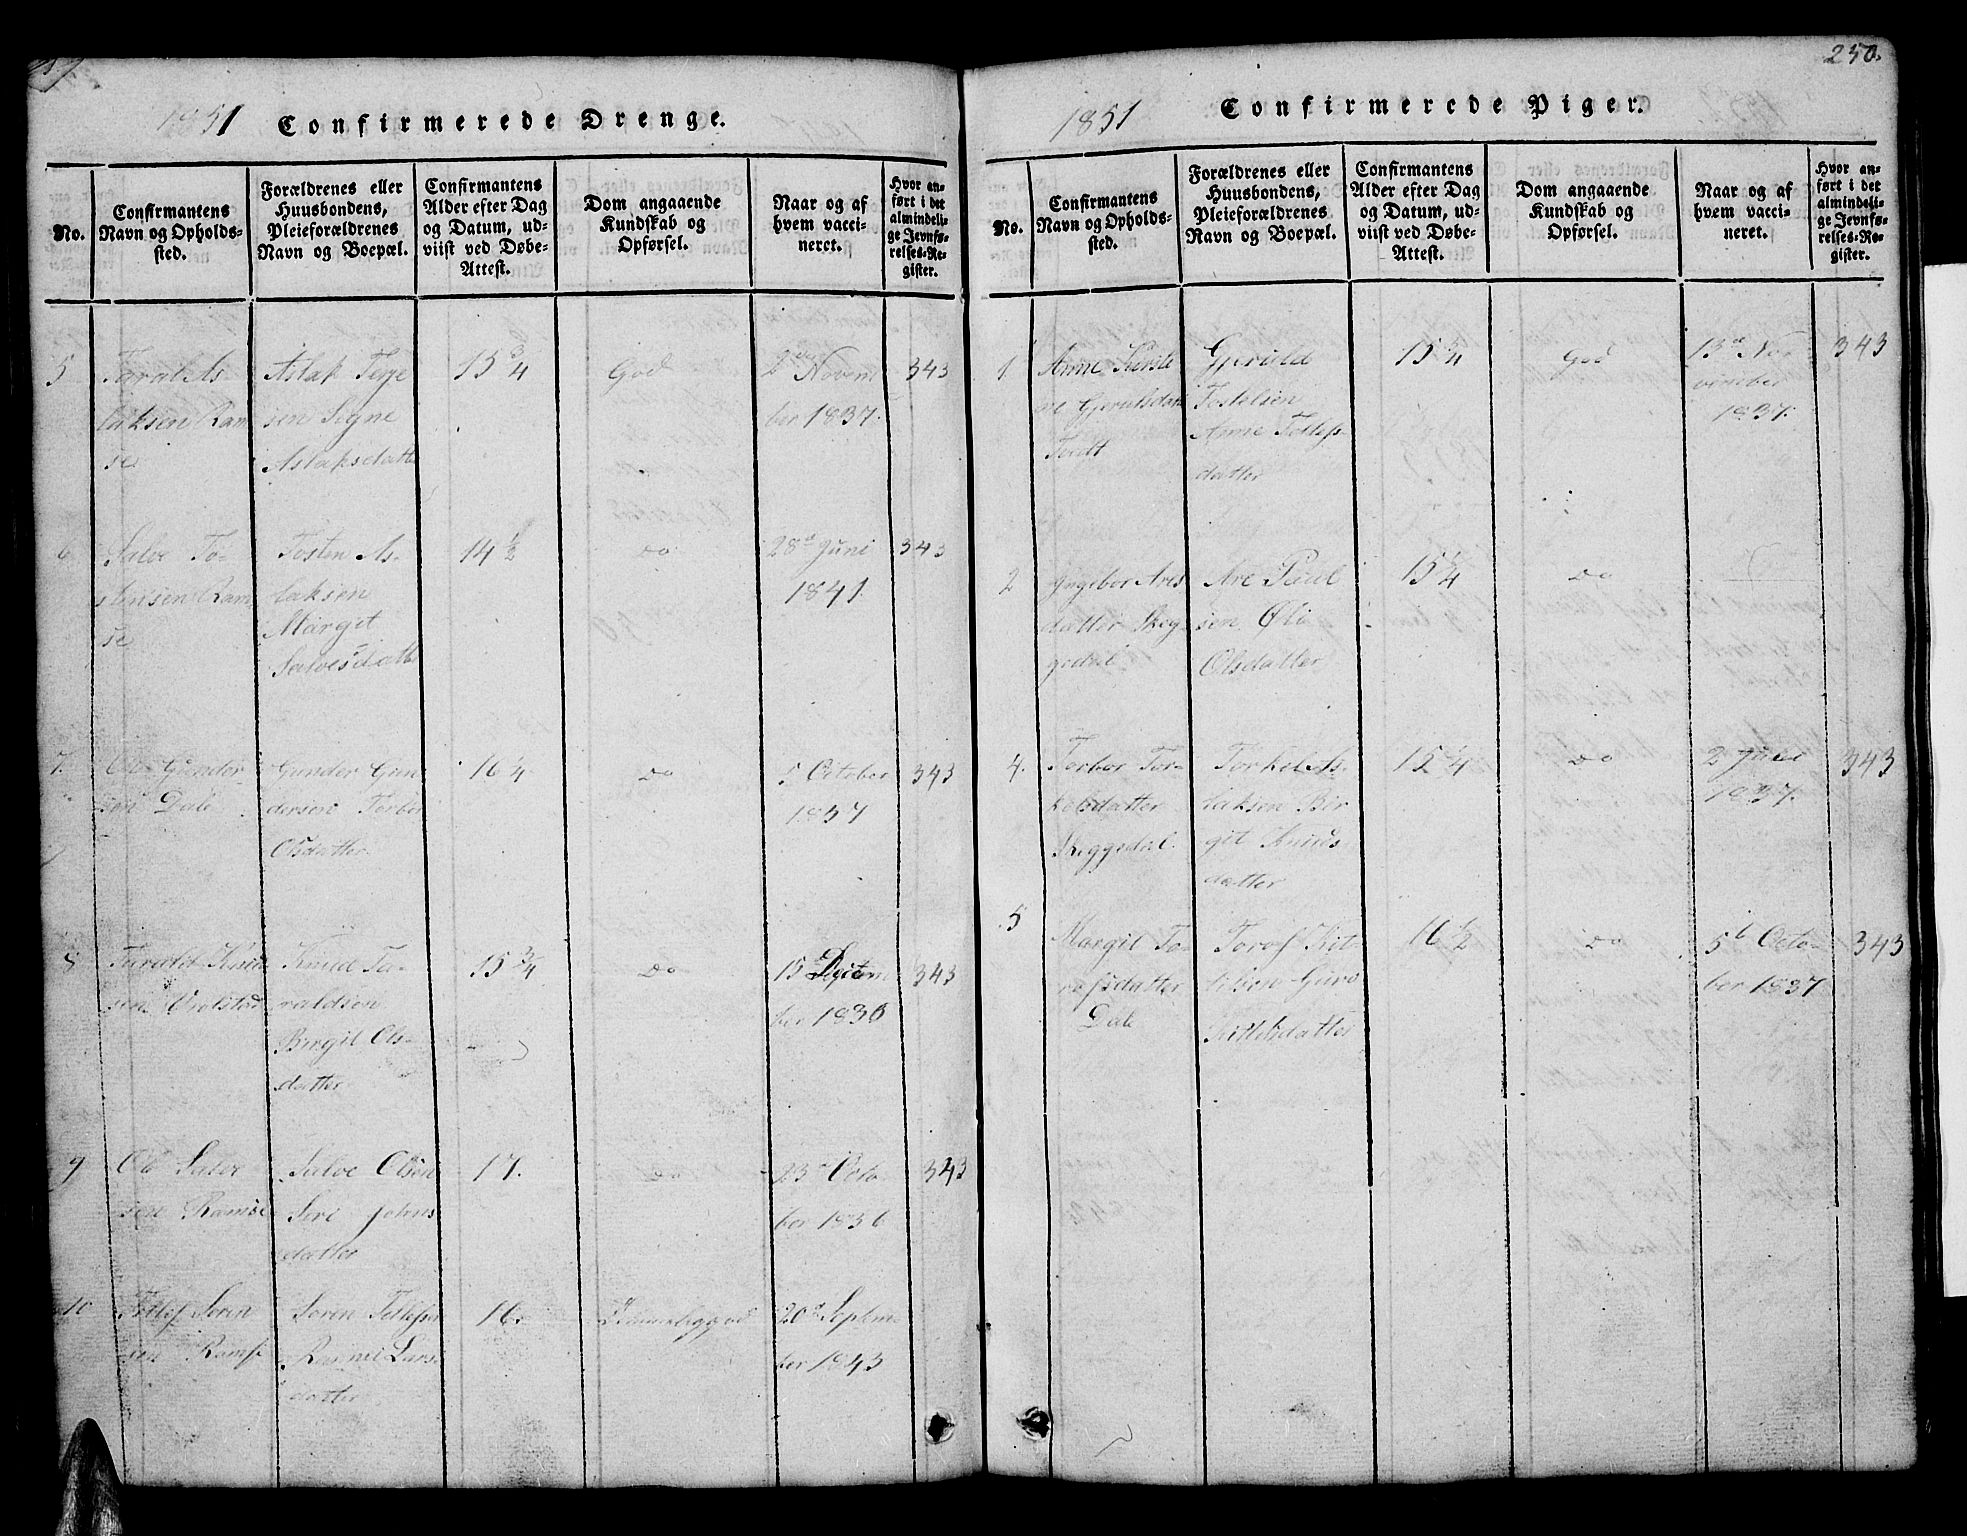 1851 Confirmerede Drenge.
No.
Confirmantens
Navn og Opholds-
sted.
Forældrenes eller
Huusbondens,
Pleieforældrenes
Navn og Boepæl.
Confirmantens
Alder efter Dag
og Datum, ud-
viist ved Døbe-
Attest.
Dom angaaende
Kundskab og
Opførsel.
Naar og af
hvem vacci-
neret.
Hvor an-
ført i det
almindeli-
ge Jevnfø-
relses-Re-
gister.
5
Taral As-
laksen Ram
se
Aslak Terje
sen Signe
Aslaksdatte
15 3/4
God
Novem
ber 1837.
343
6
Salve To-
stensen Ram
se
Tosten As-
laksen
Margit
Salvesdatte
14 1/2
do
28d Juni
1841.
343
7.
Ole Gunder
sen Dale
Gunder Gun
dersen Torbor
Olsdatter
16 1/4
do
5 October
1837
343
8
Knud
sen
Knud Ta-
raldsen
Birgit Ols-
datter
15 3/4
do
15
ber 1836
343
9
Ole Salve
sen Ramse
Salve Olsen
Siri Johns
datter
17.
do
23d Octo
ber 1836
343
10
Tellef Søren
sen Ramse
Søren Tellefsen
Lars-
datter
16.
20d Septem
ber 1843
250.
1851 Confirmerede Piger.
No.
Confirmantens
Navn og Opholds-
sted.
Forældrenes eller
Huusbondens,
Pleieforældrenes
Navn og Boepæl.
Confirmantens
Alder efter Dag
og Datum, ud-
viist ved Døbe-
Attest.
Dom angaaende
Kundskab og
Opførsel.
Naar og af
hvem vacci-
neret.
Hvor an-
ført i det
almindeli-
ge Jevnfø-
relses-Re-
gister.
1
Anne Kirste
ne Gjeruldsdatt
Tvedt
Gjeruld
Tostelsen
Anne Tellefs-
datter
15 3/4
God
13d No-
vember
1837.
343
2
Ingebor Ares
datter Skeg-
gedal
Are Paul
sen Øli
Olsdatter
15 1/4
do
4.
Torbor Tor-
kelsdatter
Skeggedal
Torkel As-
laksen Bir
git Knuds-
datter
15 1/4
do
2 Juli
1837.
343
5
Margit To-
rofsdatter
Dale
Torof Kit-
telsen Guro
Kittelsdatter
16 1/2
do
5t Octo-
ber 1837
343